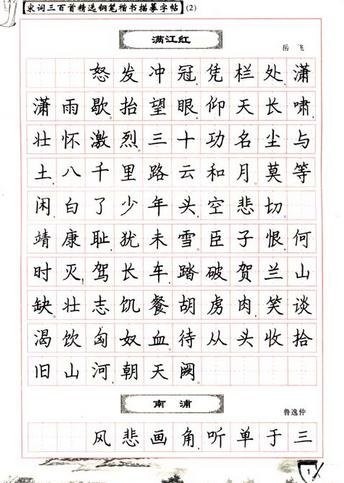 宋词三百首精选钢笔楷书描摹字帖(2)
满江红
岳 飞
怒发冲冠.凭栏处.潇
潇雨歇.抬望眼.仰天长啸.
壮怀激烈.三十功名尘与
土.八千里路云和月.莫等
闲.白了少年头.空悲切.
靖康耻.犹未雪.臣子恨.何
时灭.驾长车.踏破贺兰山
缺.壮志饥餐胡虏肉.笑谈
渴饮匈奴血.待从头.收拾
旧山河.朝天阙.
南浦
鲁逸仲
风悲画角.听单于三
1